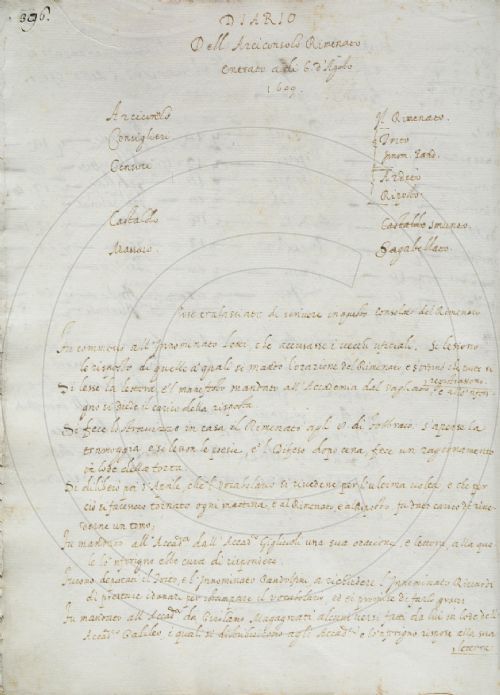 396.
DIARIO
Dell Arciconsolo Rimenato
Entrato a di 6. d'Agosto
1609.
Arciconsolo Il Rimenato.
Consiglieri Trito
Innom.
Censori Ardito
Riposto.
Castaldo Castaldo Smunto
Massaio. Sgabellato.
di scrivere in questo Consolato del Rimenato
Fu commesso all'Innominato che accusasse i vecchi ufiziali. Si lessono
le risposte di quelle a' quali si mandò l'orazione del Rimenato
Si lesse la lettera e'l mandato all'Accademia dal
gno si diede il carico della risposta
Si fece lo stravizzo in casa il Rimenato agli 8 di febbraio: s'aperse la
tramoggia, e si lesson le poesie, e l'Difeso dopo cena, fece un ragionamento
in lode della torta
Si diliberò per d'Aprile, che il Vocabolario si rivedesse per l'ultima volta, e che per
ciò si facesson tornate ogni mattina, e al Rimenato e fu dato carico di rive-
derne un tomo;
Fu mandato all'Accad.a dall'Accad.o una sua orazione, e lettera, alla qua-
le lo'nferigno ebbe cura di rispondere
Furono deputati il Trito, e l'Innominato Bandolfini, a richiedere l'Innominato Riccardi
di prestare danari per istampare il vocabolario, ed ei propose di farlo
Fu mandato all'Accad.a da Girolamo Magagnati alcuni versi fatti da lui in lode dell'
Accad.o Galileo i quali si distribuirono agli Accad.i e lo'nferigno rispose alla sua
lettera